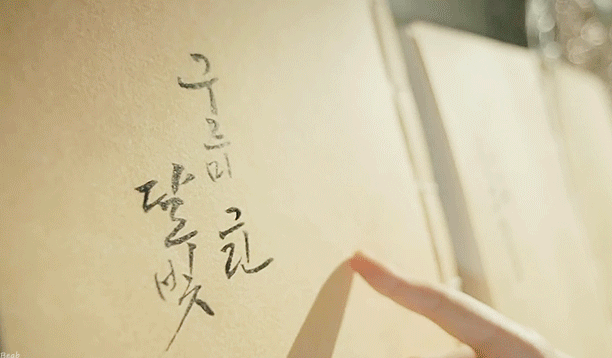 구르미
그린
달빛